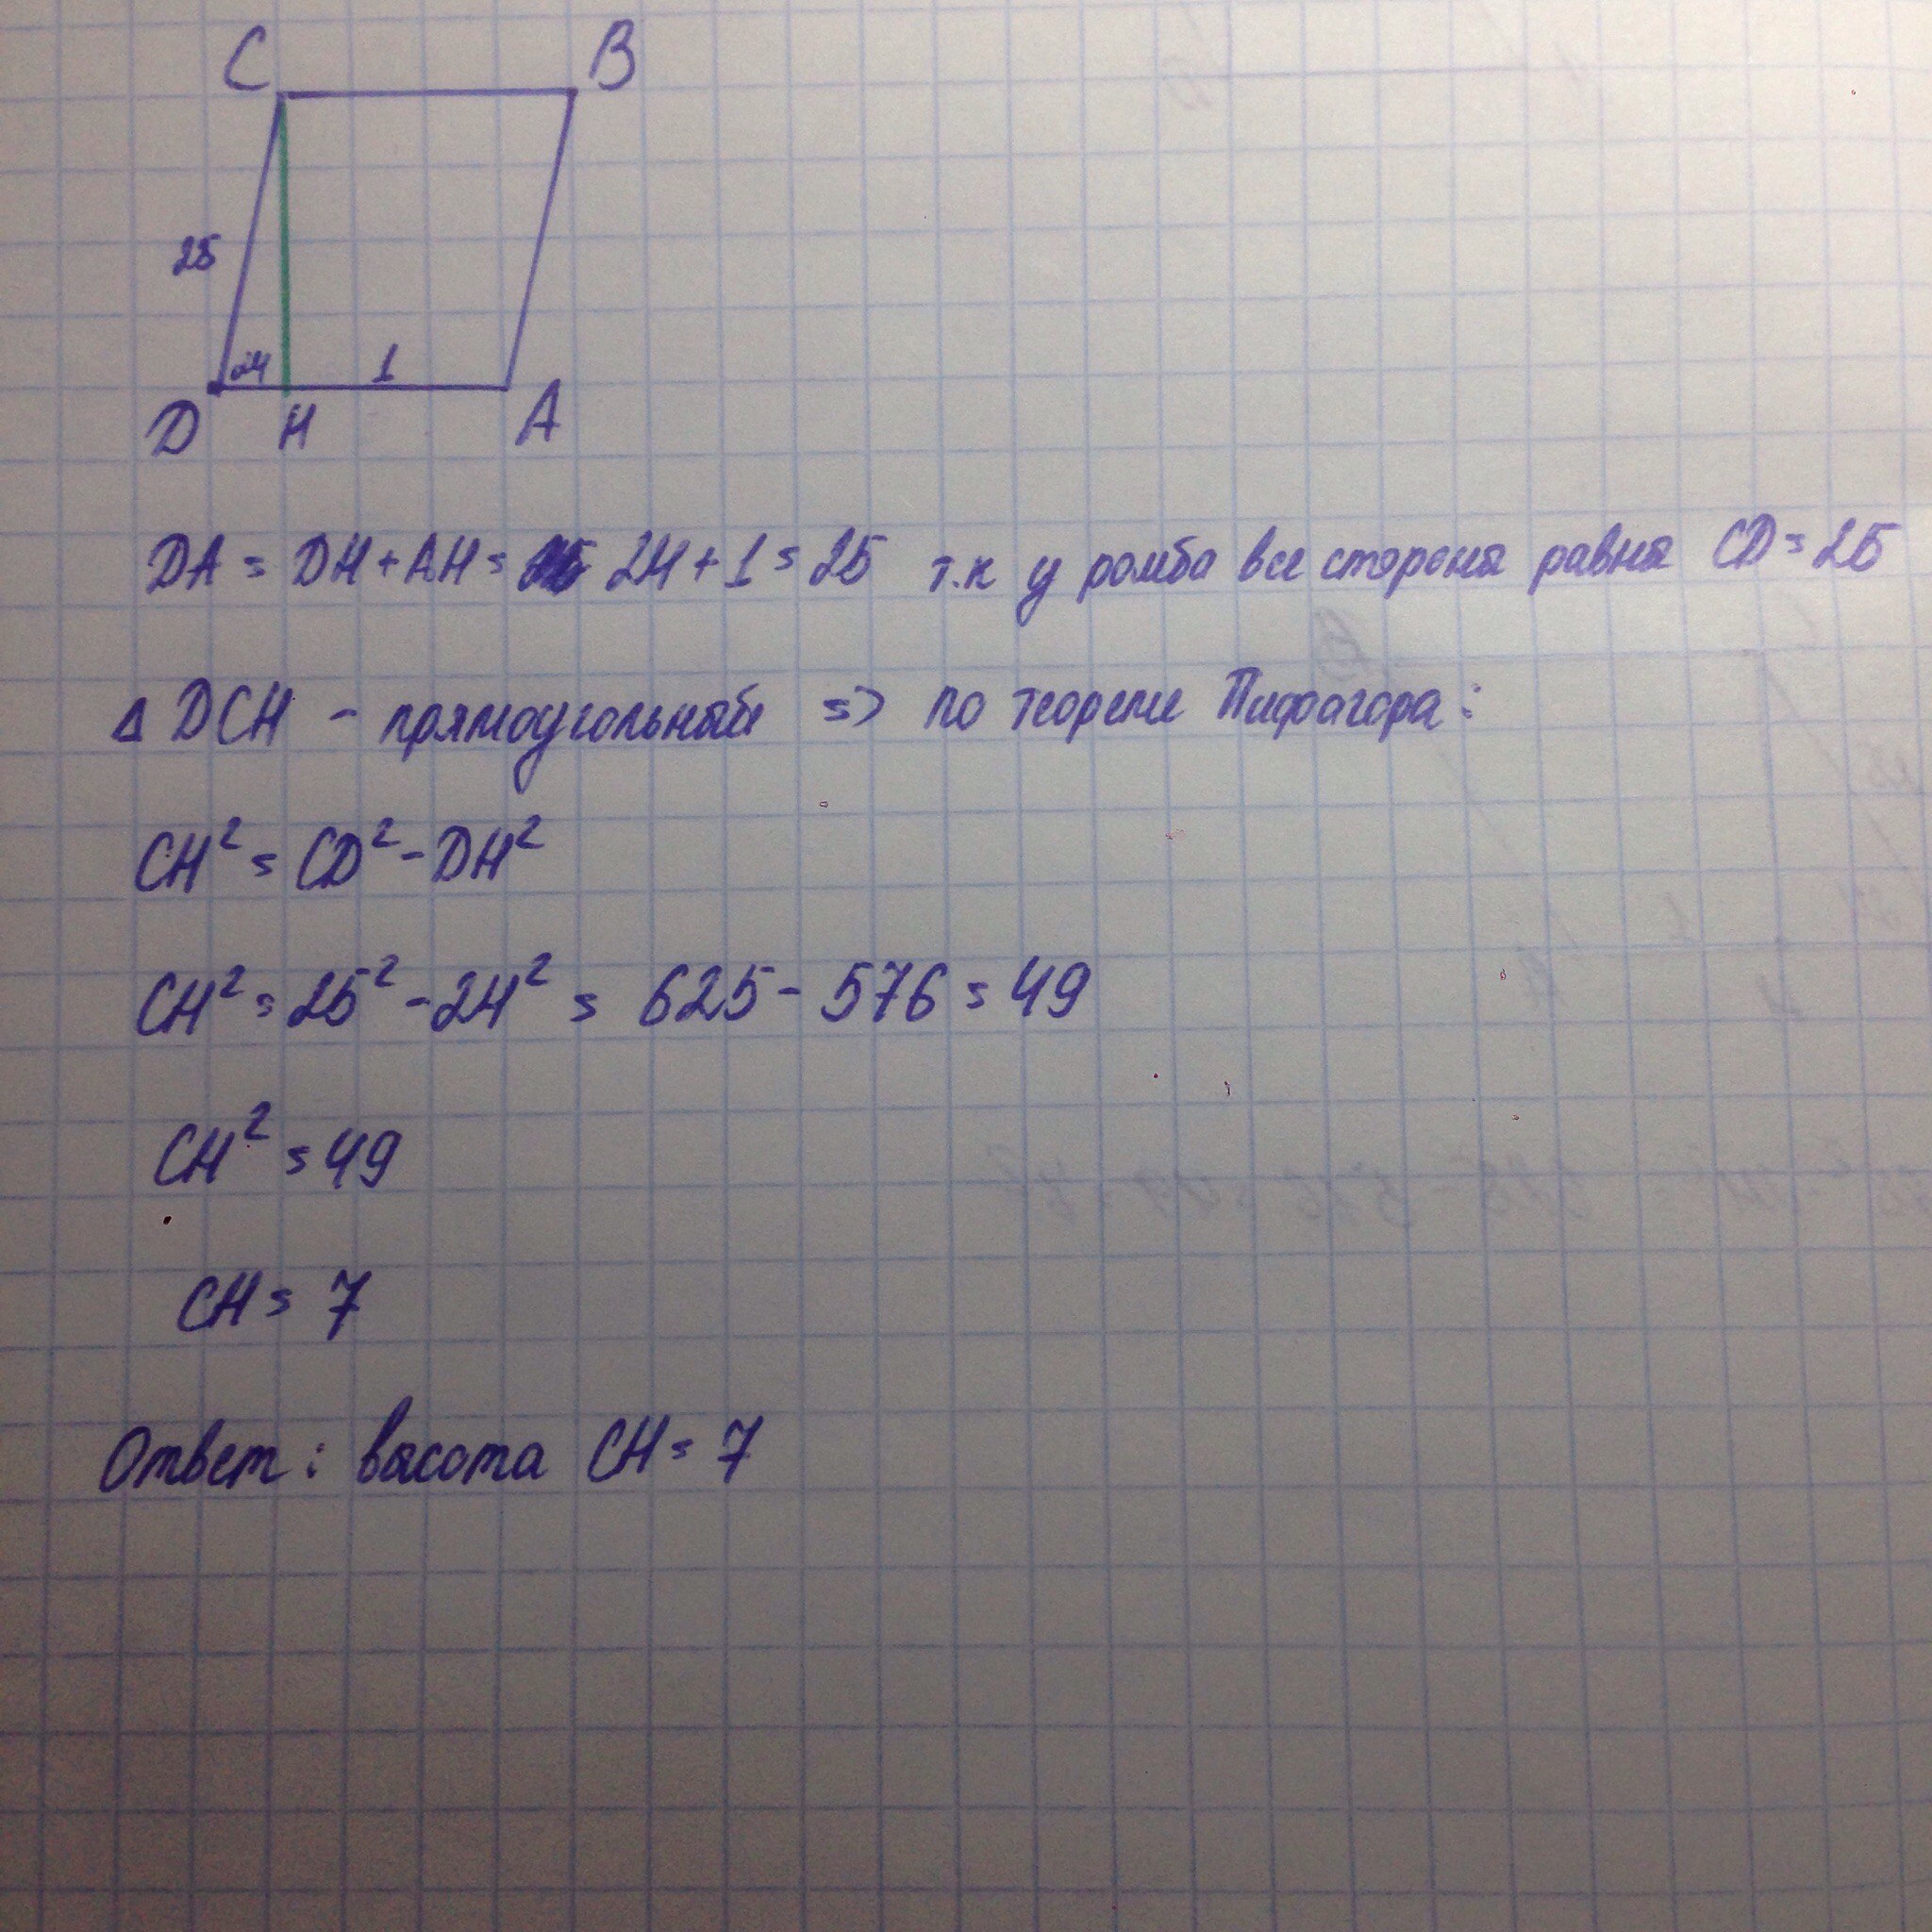 C B
25
24 1
D H A
DA = DH + AH = 24 + 1 = 25 т.к у ромба все стороны равны CD = 25
Δ DCH - прямоугольный => по теореме Пифагора:
CH² = CD² - DH²
CH² = 25² - 24² = 625 - 576 = 49
CH² = 49
CH = 7
Ответ: высота CH = 7